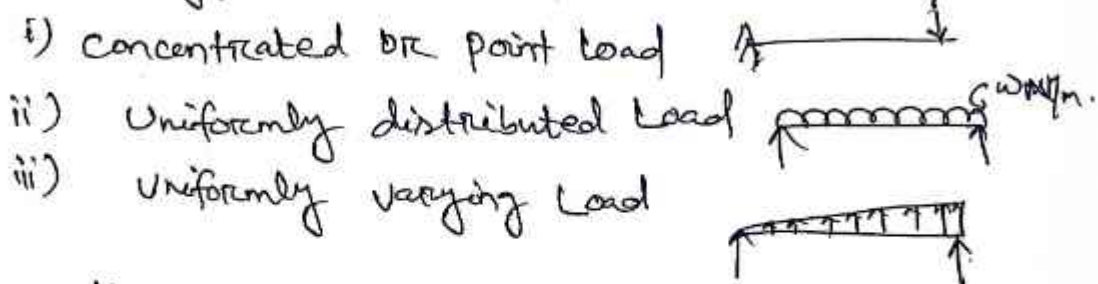 i) concentrated or point load
ii) Uniformly distributed Load w N/m.
iii) Uniformly varying Load